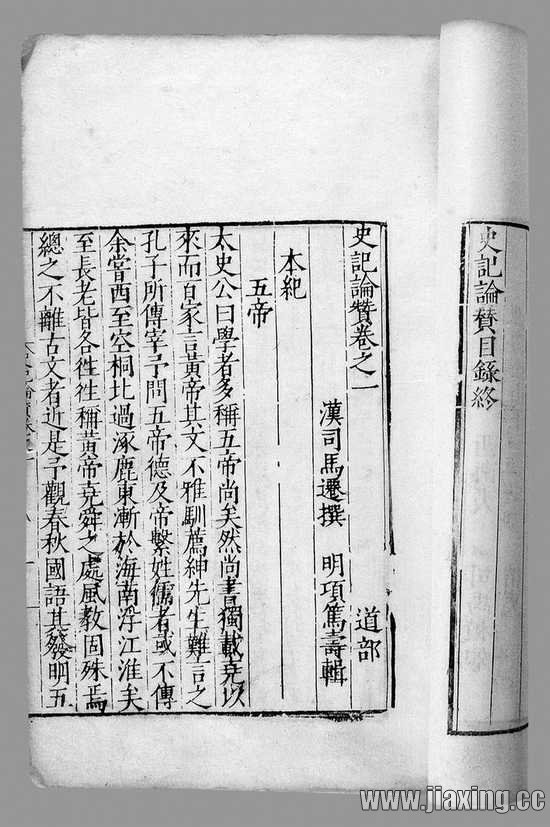 史記論贊目錄終
史記論贊卷之一　道部
漢司馬遷撰　明項篤壽輯
本紀
五帝
太史公曰學者多稱五帝尚矣然尚書獨載堯以
來而百家言黃帝其文不雅馴薦紳先生難言之
孔子所傳宰予問五帝德及帝繫姓儒者或不傳
余嘗西至空桐北過涿鹿東漸於海南浮江淮矣
至長老皆各往往稱黃帝堯舜之處風教固殊焉
總之不離古文者近是予觀春秋國語其發明五
www.jiaxing.cc